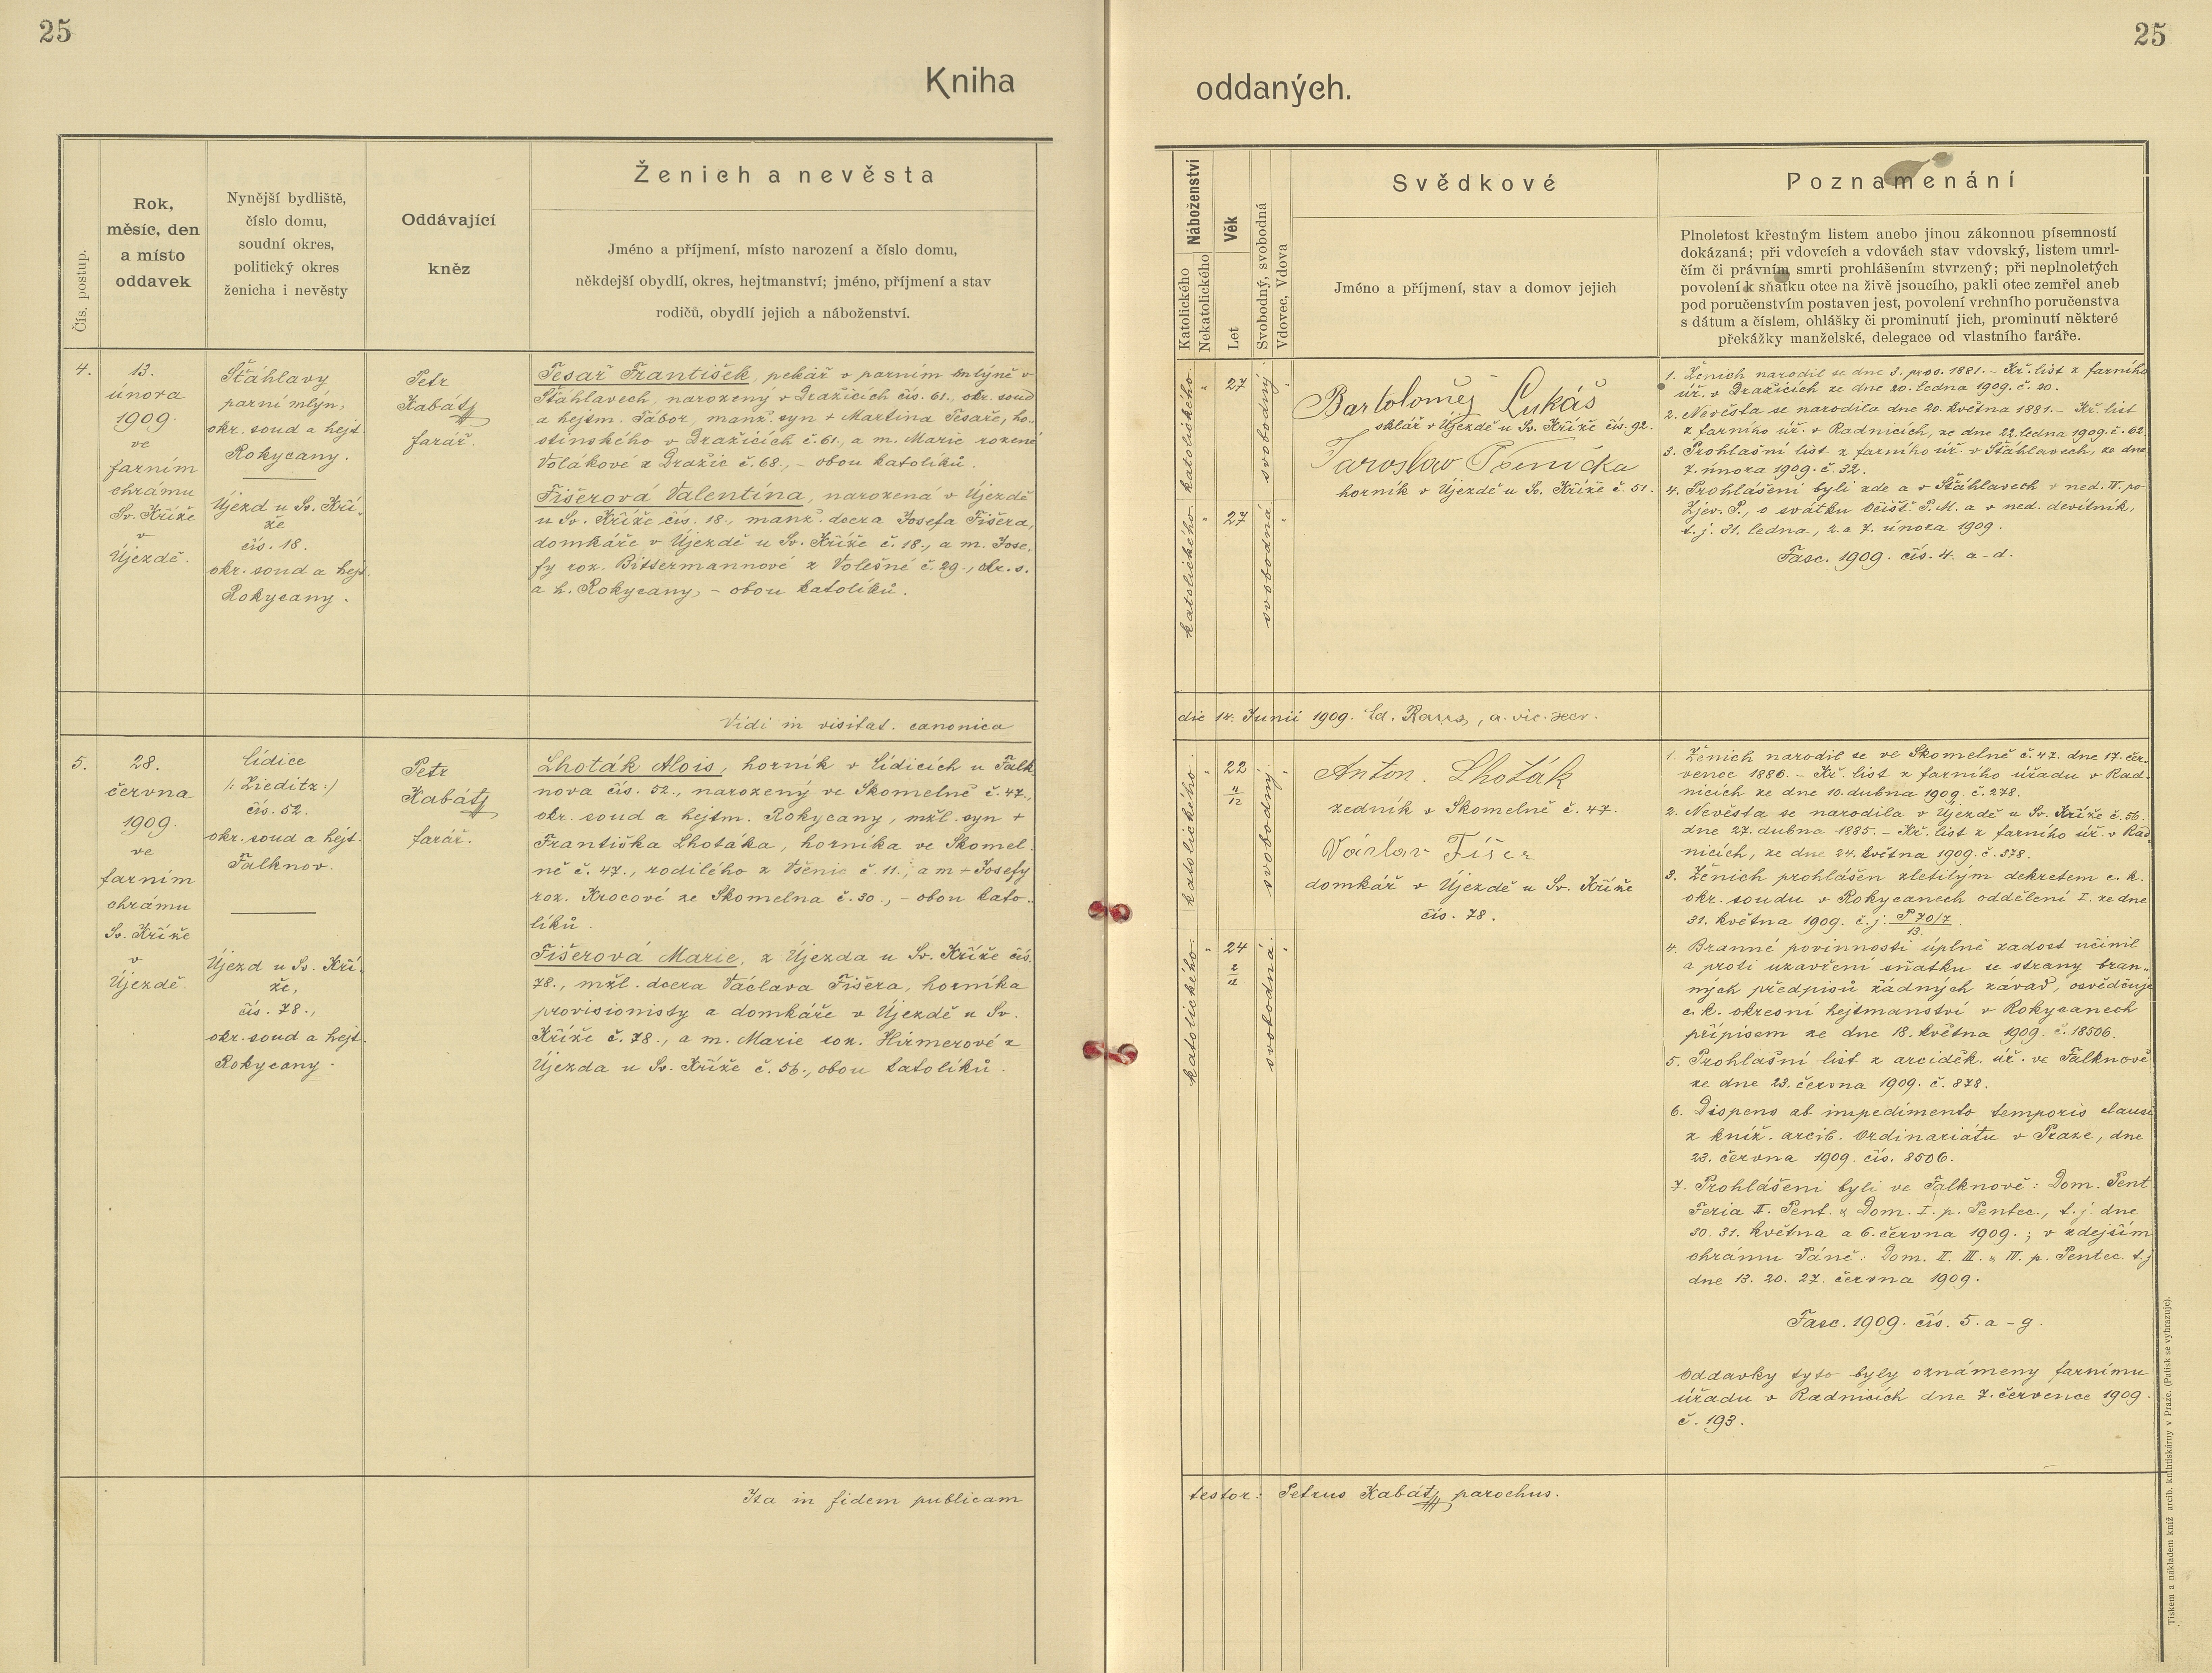 25
25
Kniha
oddaných.
Čís. postup.
Rok,
měsíc, den
a místo
oddavek
Nynější bydliště,
číslo domu,
soudní okres,
politický okres
ženicha i nevěsty
Oddávající
kněz
Ženich a nevěsta
Jméno a příjmení, místo narození a číslo domu,
někdejší obydlí, okres, hejtmanství; jméno, příjmení a stav
rodičů, obydlí jejich a náboženství.
Náboženství
Katolického
Nekatolického
Věk
Let
Svobodný, svobodná
Vdovec, Vdova
Svědkové
Jméno a příjmení, stav a domov jejich
Poznamenání
Plnoletost křestným listem anebo jinou zákonnou písemností
dokázaná; při vdovcích a vdovách stav vdovský, listem umrl-
čím či právním smrti prohlášením stvrzený; při neplnoletých
povolení k sňatku otce na živě jsoucího, pakli otec zemřel aneb
pod poručenstvím postaven jest, povolení vrchního poručenstva
s dátum a číslem, ohlášky či prominutí jich, prominutí některé
překážky manželské, delegace od vlastního faráře.
4.
13.
února
1909.
ve
farním
chrámu
Sv. Kříže
v
Újezdě.
Štáhlavy
parní mlýn,
okr. soud a hejt.
Rokycany.
Újezd u Sv. Kří-
že
čís. 18.
okr. soud a hejt.
Rokycany.
Petr
Kabát
farář.
Tesař František, pekář v parním mlýně v
Štáhlavech, narozený v Dražicích čís. 61., okr. soud
a hejtm. Tábor, manž. syn + Martina Tesaře, ho-
stinského v Dražicích č. 61., a m. Marie rozené
Volákové z Dražic č. 68., – obou katolíků.
Fišerová Valentina, narozená v Újezdě
u Sv. Kříže čís. 18., manž. dcera Josefa Fišera,
domkáře v Újezdě u Sv. Kříže č. 18., a m. Jose-
fy roz. Bittermannové z Volešné č. 29., okr. s.
a h. Rokycany, – obou katolíků.
katolického.
27
svobodný.
katolického.
27
svobodná.
Bartoloměj Lukáš
sklář v Újezdě u Sv. Kříže čís. 92.
Jaroslav Pšenička
horník v Újezdě u Sv. Kříže č. 51.
1. Ženich narodil se dne 3. pros. 1881. – Kř. list z farního
úř. v Dražicích ze dne 20. ledna 1909. č. 20.
2. Nevěsta se narodila dne 20. května 1881. – Kř. list
z farního úř. v Radnicích, ze dne 22. ledna 1909. č. 62.
3. Prohlašní list z farního úř. v Štáhlavech, ze dne
7. února 1909. č. 32.
4. Prohlášeni byli zde a v Štáhlavech v ned. IV. po
Zjev. P., o svátku Očišť. P. M. a v ned. devítník,
t. j. 31. ledna, 2. a 7. února 1909.
Fasc. 1909. čís. 4. a – d.
Vidi in visitat. canonica
die 14. Junii 1909. Ed. Raus, a. vic. secr.
5.
28.
června
1909.
ve
farním
chrámu
Sv. Kříže
v
Újezdě.
Lidice
/: Lieditz :/
čís. 52.
okr. soud a hejt.
Falknov.
Újezd u Sv. Kří-
že,
čís. 78.,
okr. soud a hejt.
Rokycany.
Petr
Kabát
farář.
Lhoták Alois, horník v Lidicích u Falk
nova čís. 52., narozený ve Skomelně č. 47.,
okr. soud a hejtm. Rokycany, mžl. syn +
Františka Lhotáka, horníka ve Skomel-
ně č. 47., rodilého z Všenic č. 11., a m + Josefy
roz. Krocové ze Skomelna č. 30., – obou kato-
líků.
Fišerová Marie, z Újezda u Sv. Kříže čís.
78., mžl. dcera Václava Fišera, horníka
provisionisty a domkáře v Újezdě u Sv.
Kříže č. 78., a m. Marie roz. Hirmerové z
Újezda u Sv. Kříže č. 56., obou katolíků.
katolického.
22
11/12
svobodný.
katolického.
24
2/12
svobodná.
Anton. Lhoták
zedník v Skomelně č. 47.
Václav Fišer
domkář v Újezdě u Sv. Kříže
čís. 78.
1. Ženich narodil se ve Skomelně č. 47. dne 17. čer-
vence 1886. – Kř. list z farního úřadu v Rad-
nicích ze dne 10. dubna 1909. č. 278.
2. Nevěsta se narodila v Újezdě u Sv. Kříže č. 56.
dne 27. dubna 1885. – Kř. list z farního úř. v Rad
nicích, ze dne 24. května 1909. č. 378.
3. Ženich prohlášen zletilým dekretem c. k.
okr. soudu v Rokycanech oddělení I. ze dne
31. května 1909. č. j. P 70/7
13.
4. Branné povinnosti úplně zadost učinil
a proti uzavření sňatku se strany bran-
ných předpisů žádných závad, osvědčuje
c. k. okresní hejtmanství v Rokycanech
přípisem ze dne 18. května 1909. č. 18506.
5. Prohlašní list z arciděk. úř. ve Falknově
ze dne 23. června 1909. č. 878.
6. Dispens ab impedimento temporis clausi
z kníž. arcib. Ordinariátu v Praze, dne
23. června 1909. čís. 8506.
7. Prohlášeni byli ve Falknově: Dom. Pent
Feria II. Pent. & Dom. I. p. Pentec., t. j. dne
30. 31. května a 6. června 1909.; v zdejším
chrámu Páně: Dom. II. III. & IV. p. Pentec. t. j
dne 13. 20. 27. června 1909.
Fasc. 1909. čís. 5. a – g.
Oddavky tyto byly oznámeny farnímu
úřadu v Radnicích dne 7. července 1909.
č. 193.
Ita in fidem publicam
testor: Petrus Kabát parochus.
Tiskem a nákladem kníž. arcib. knihtiskárny v Praze. (Patisk se vyhrazuje).